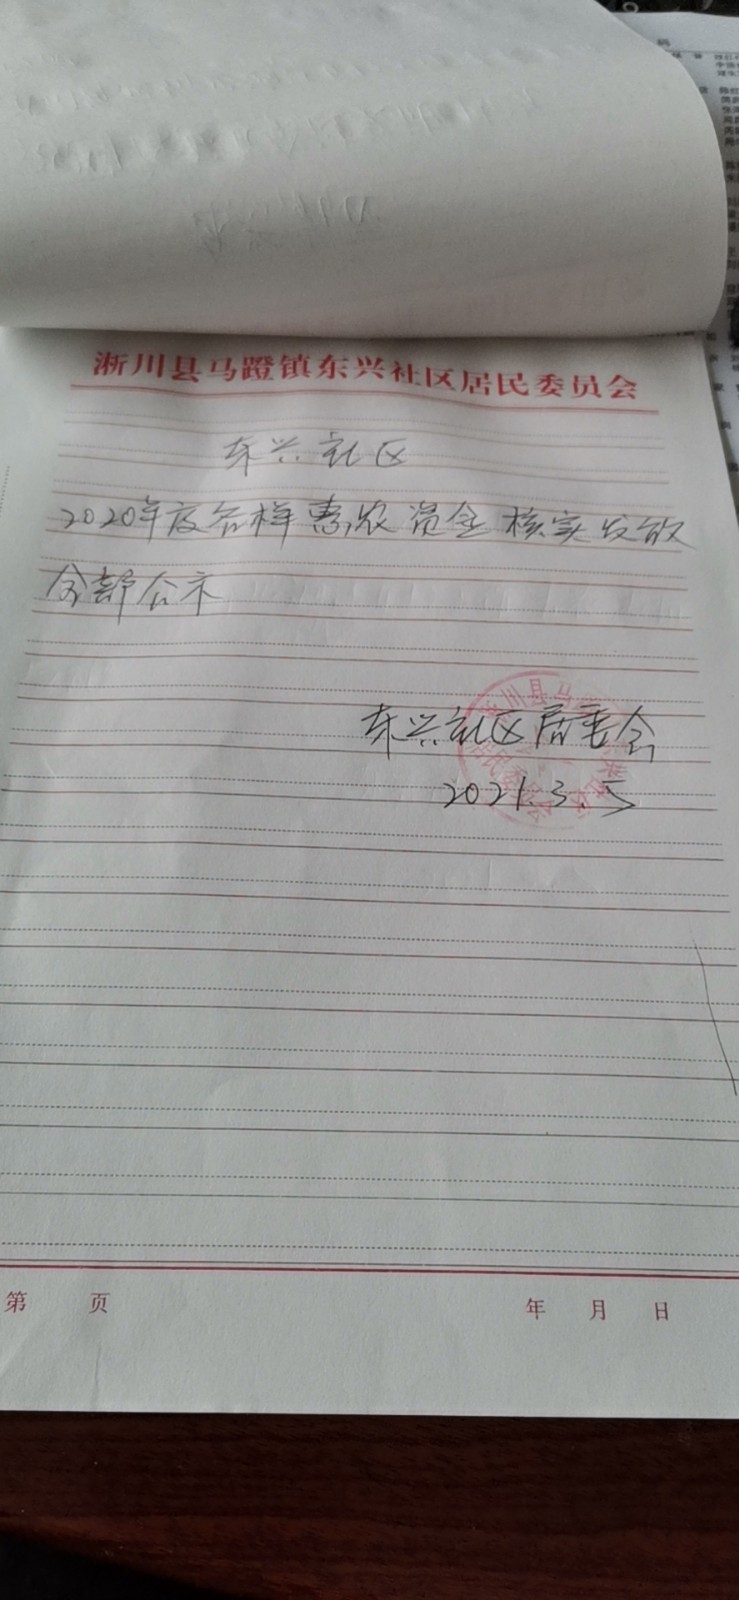 淅川县马蹬镇东兴社区居民委员会
东兴社区
2020年度各样惠农资金核实发放
全部公示
东兴社区居委会
2021.3.5
第 页 年 月 日